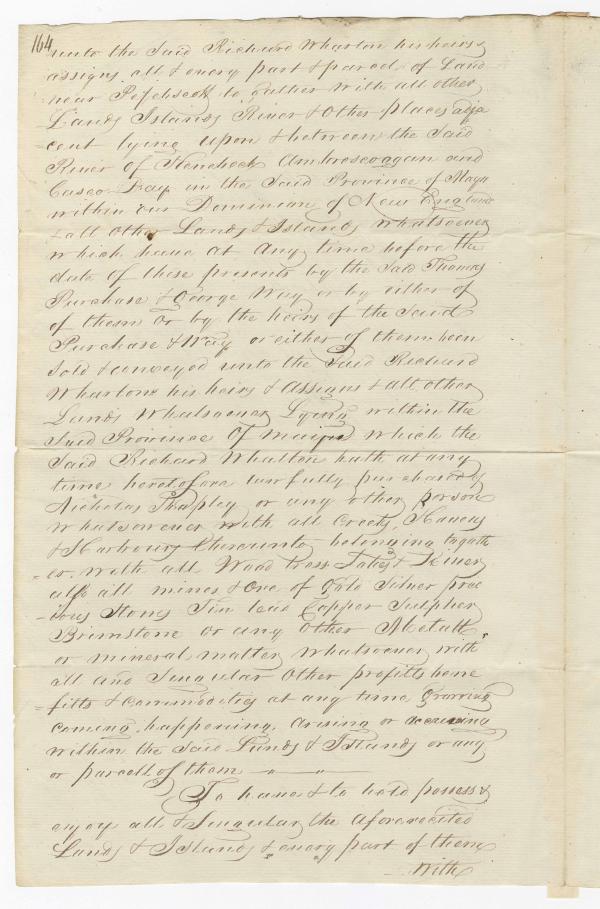 164
unto the Said Richard Wharton his heirs &
assigns, all & every part & parcel of Land
near Pejebscok to gather with all other
Lands Islands River & other places adja
=cent lying upon & between the Said
River of Kenebeck Ambroscoagan and
Casco Bay in the Said Province of Mayn
within our Dominion of New England
& all other Lands & Islands whatsoever
which have at any time before the
date of these presents by the Said Thomas
Purchase & George Way or by either of
of them or by the heirs of the Said
Purchase & Way or either of them been
Sold & conveyed unto the Said Richard
Wharton his heirs & assigns & all other
Lands whatsoever Lying within the
Said Province of Mayn which the
Said Richard Whalton hath at any
time heretofore lawfully purchased
Nicholas Shapley or any other person
whatsoever with all Creeks, Havens
& Harbours thereunto belonging togath
=er with all Wood trass Lakes & River
also all mines & Ore of Gold Silver prec
=ious Stones Tin lead Copper Sulpher
Brimstone or any other Metall
or mineral matter whatsoever with
all and Singular other profitts bene
=fitts & commodities at any time Growing
coming, happening, arising or accruing
within the Said Lands & Islands or any
or parcell of them
To have & to hold possess &
enjoy all & Singular, the aforerecited
Lands & Islands & every part of them
With